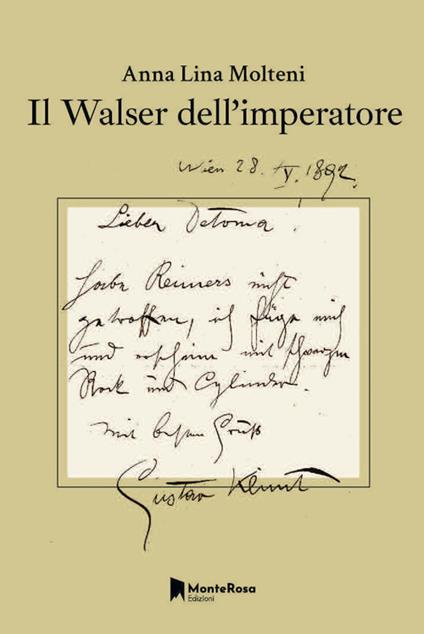 Anna Lina Molteni
Il Walser dell'imperatore
Wien 28. V. 1892.
Lieber Detoma!
Habe Reiners nicht
getroffen, ich füge mich
und erscheine mit schwarzem
Rock und Cylinder.
Mit bestem Gruß
Gustav Klimt
MonteRosa
Edizioni